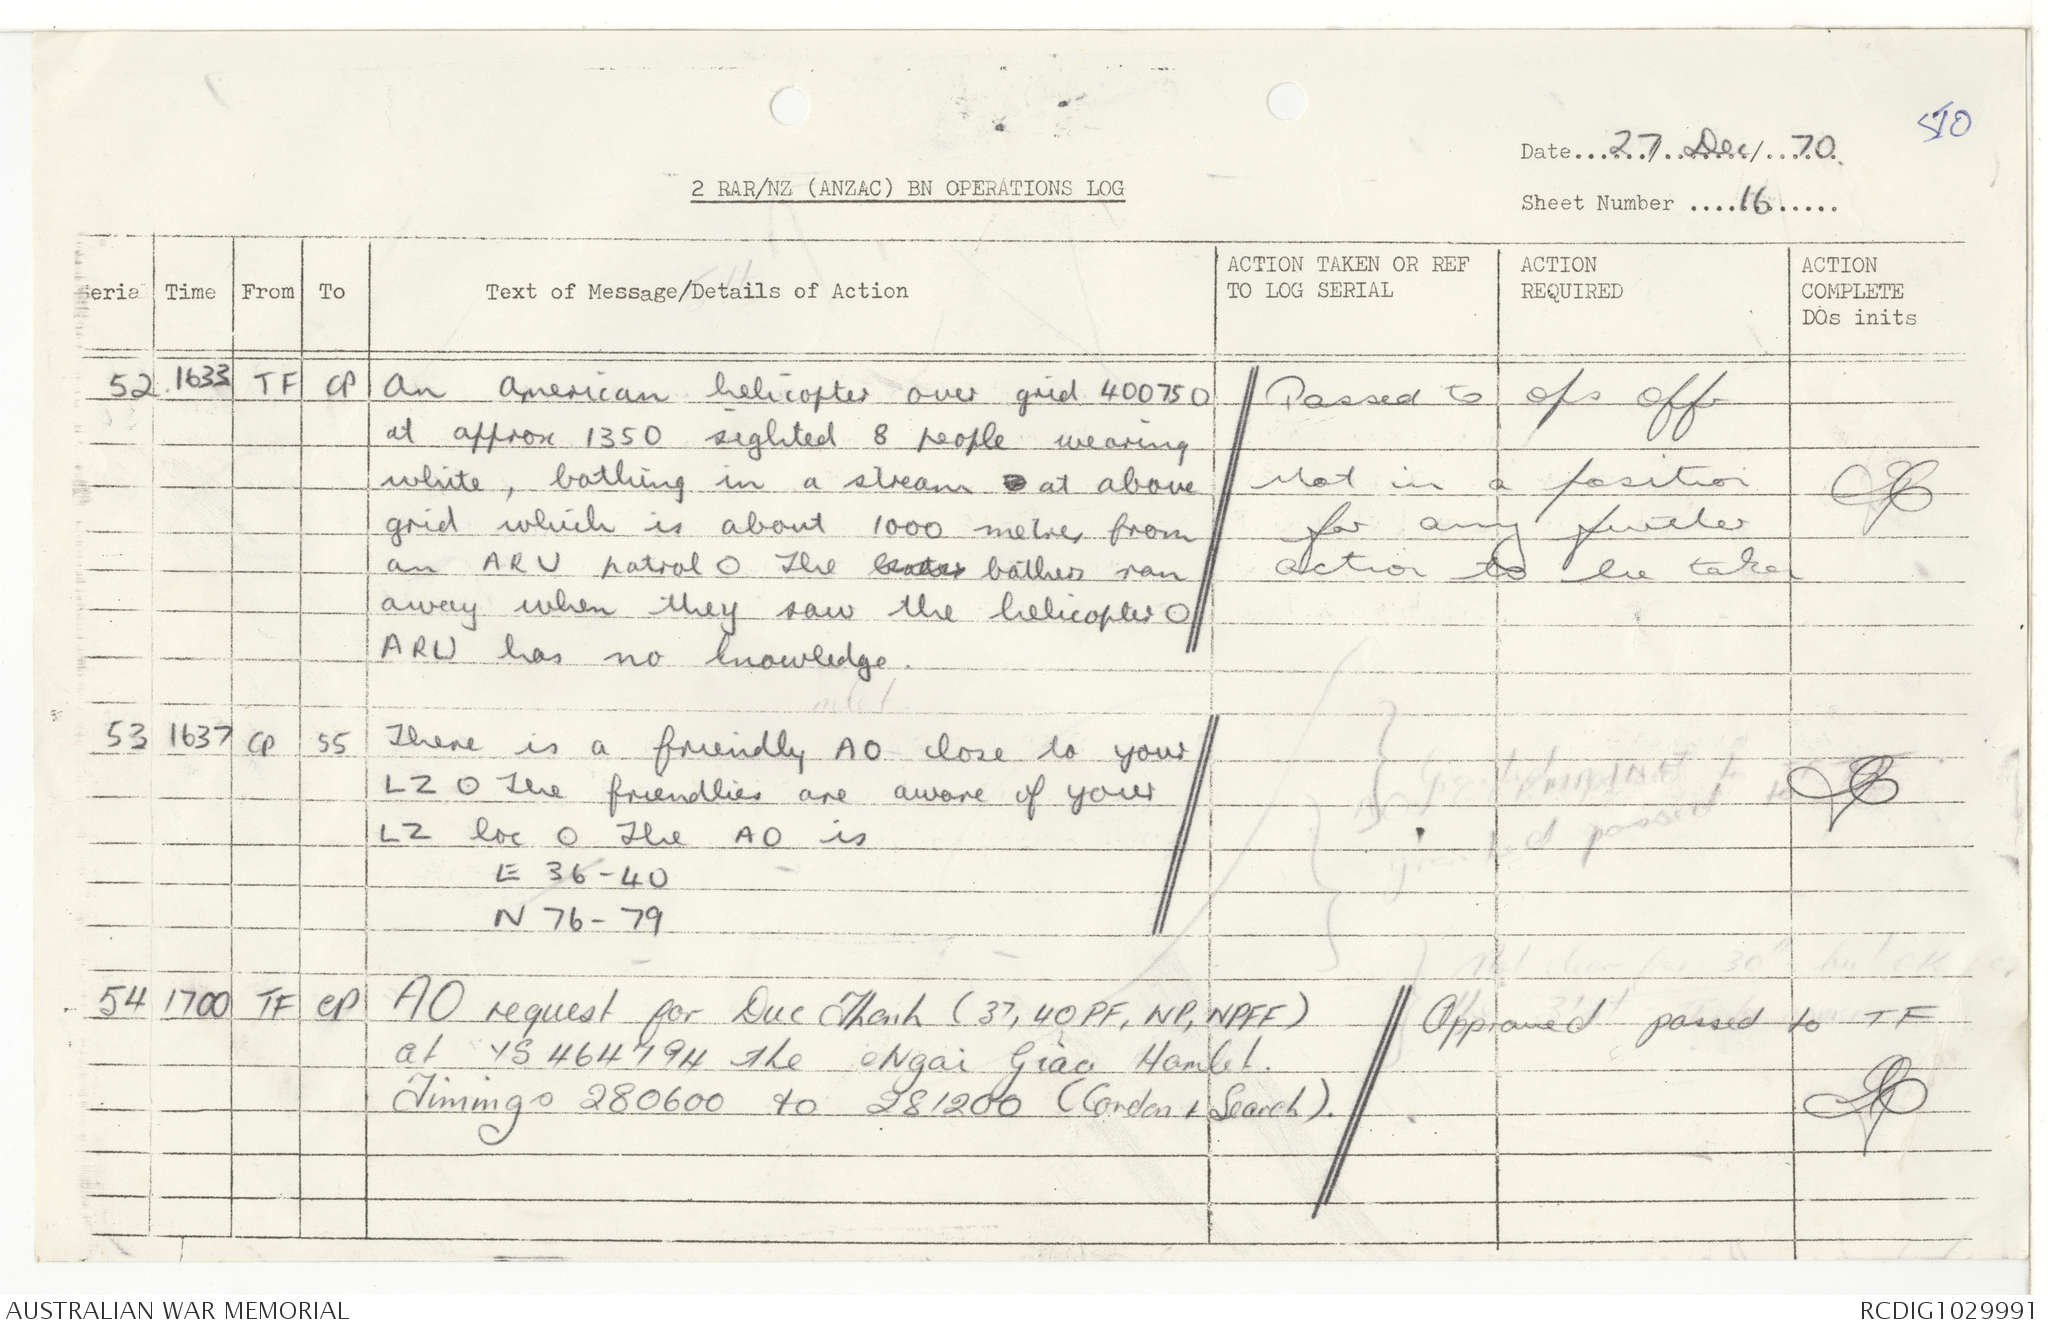 510
Date 27/Dec/70
2 RAR/NZ (ANZAC) BN OPERATIONS LOG
Sheet Number 16
Serial Time From To Text of Message/Details of Action ACTION TAKEN OR REF TO LOG SERIAL ACTION REQUIRED ACTION COMPLETE DOs inits
52 1633 TF CP An American helicopter over grid 400750 Passed to ops offr
at approx 1350 sighted 8 people wearing
white, bathing in a stream at above Not in a position
grid which is about 1000 metres from for any further
an ARU patrol O The bathers ran action to be taken
away when they saw the helicopter O
ARU has no knowledge.
53 1637 CP 55 There is a friendly AO close to your
LZ O The friendlies are aware of your
LZ loc O The AO is
E 36-40
N 76-79
54 1700 TF CP AO request for Duc Thanh (37, 40 PF, NP, NPFF) Approved passed to TF
at YS 464794 the Ngai Giao Hamlet.
Timings 280600 to 281200 (Cordon + Search).
AUSTRALIAN WAR MEMORIAL
RCDIG1029991